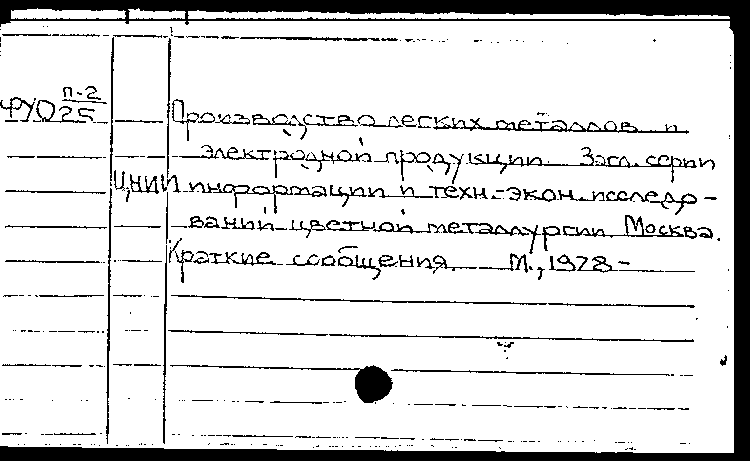 ФУО П-2/25
Производство легких металлов и
электродной продукции. Загл. серии
ЦНИИ информации и техн.-экон. исследо-
ваний цветной металлургии. Москва.
Краткие сообщения. М., 1978-